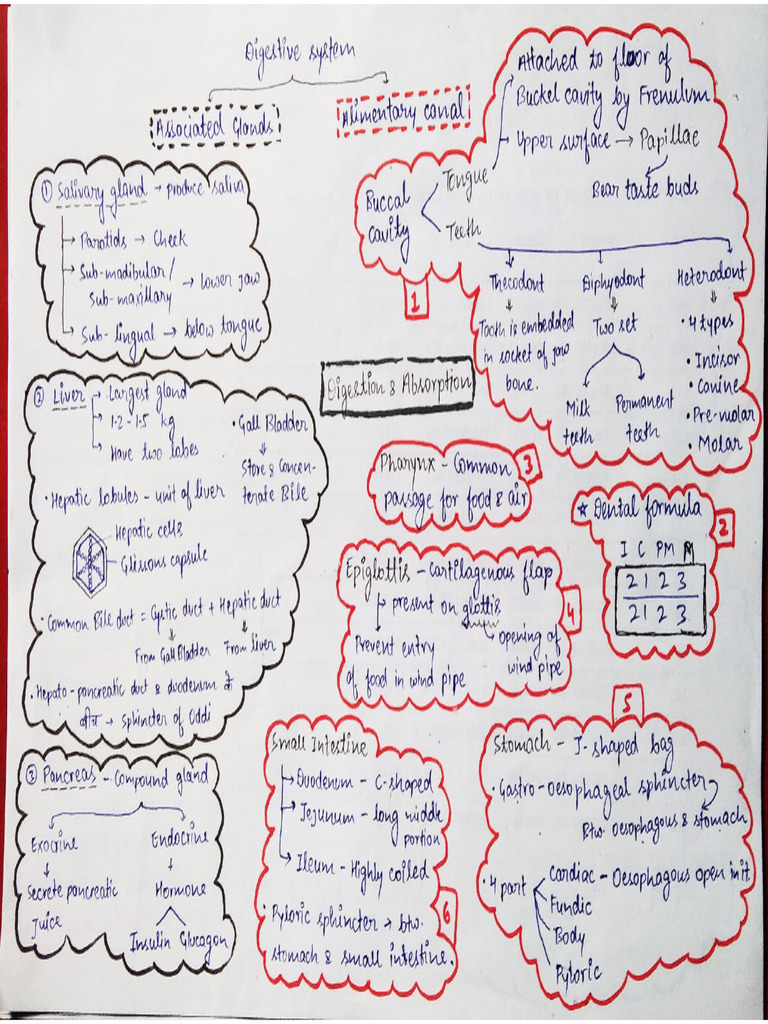 Digestive system
Associated Glands
Alimentary canal
① Salivary gland → produce saliva
→ Parotids → Check
→ Sub-madibular/
Sub-maxillary → lower jaw
→ Sub-lingual → below tongue
② Liver → Largest gland
→ 1.2-1.5 kg
→ Have two lobes
• Gall Bladder
Store & Concen-
terate Bile
• Hepatic lobules - unit of liver
Hepatic cells
Glissons capsule
• Common Bile duct = Cystic duct + Hepatic duct
From Gall Bladder From liver
• Hepato-pancreatic duct & duodenum के
बीच → sphincter of Oddi
③ Pancreas - Compound gland
Exocrine
Secrete pancreatic
Juice
Endocrine
Hormone
Insulin Glucagon
Buccal
cavity
Tongue
Teeth
Attached to floor of
Buckel cavity by Frenulum
→ Upper surface → Papillae
Bear taste buds
Thecodont
Tooth is embedded
in socket of jaw
bone.
Diphyodont
Two set
Milk
teeth
Permanent
teeth
Heterodont
• 4 types
• Incisor
• Canine
• Pre-molar
• Molar
1
Digestion & Absorption
☆ Dental formula
I C PM M
2 1 2 3
2 1 2 3
2
Pharynx - Common
passage for food & air
3
Epiglottis - Cartilagenous flap
→ present on glottis
opening of
wind pipe
Prevent entry
of food in wind pipe
4
5
Stomach - J-shaped bag
• Gastro-oesophageal sphincter
Btw. oesophagous & stomach
• 4 part
Cardiac - Oesophagous open in it.
Fundic
Body
Pyloric
Small Intestine
→ Duodenum - C-shaped
→ Jejunum - long middle
portion
→ Ileum - Highly coiled
• Pyloric sphincter → btw.
stomach & small intestine.
6